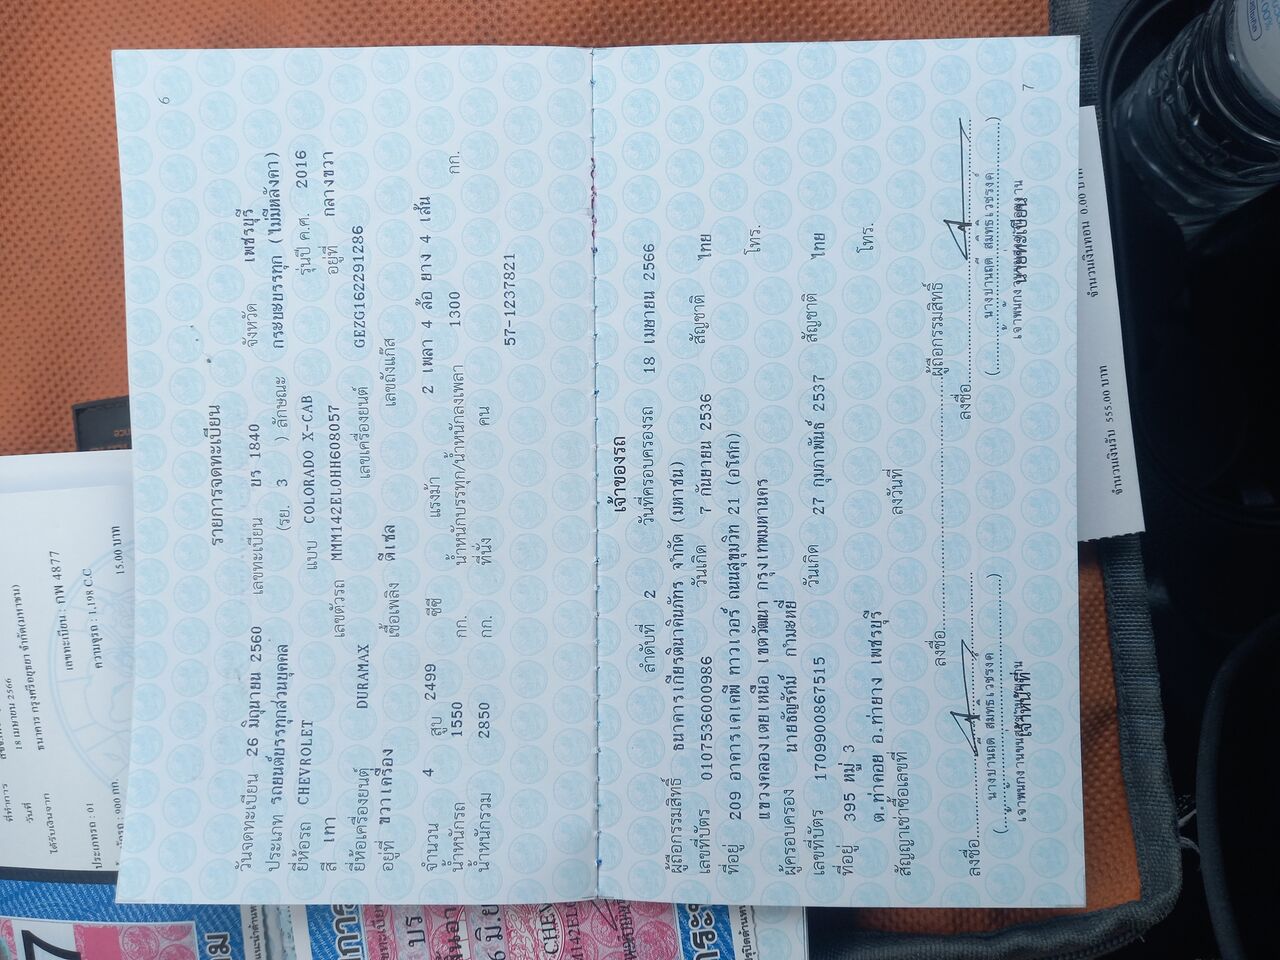 6
รายการจดทะเบียน
วันจดทะเบียน 26 มิถุนายน 2560 เลขทะเบียน บร 1840 จังหวัด เพชรบุรี
ประเภท รถยนต์บรรทุกส่วนบุคคล (รย. 3 ) ลักษณะ กระบะบรรทุก (ไม่มีหลังคา)
ยี่ห้อรถ CHEVROLET แบบ COLORADO X-CAB รุ่นปี ค.ศ. 2016
สี เทา เลขตัวรถ MMM142EL0HH608057 อยู่ที่ กลางขวา
ยี่ห้อเครื่องยนต์ DURAMAX เลขเครื่องยนต์ GEZG162291286
อยู่ที่ ขวาเครื่อง เชื้อเพลิง ดีเซล เลขถังแก๊ส
จำนวน 4 สูบ 2499 ซีซี แรงม้า 2 เพลา 4 ล้อ ยาง 4 เส้น
น้ำหนักรถ 1550 กก. น้ำหนักบรรทุก/น้ำหนักลงเพลา 1300 กก.
น้ำหนักรวม 2850 กก. ที่นั่ง คน
57-1237821
เจ้าของรถ
ลำดับที่ 2 วันที่ครอบครองรถ 18 เมษายน 2566
ผู้ถือกรรมสิทธิ์ ธนาคารเกียรตินาคินภัทร จำกัด (มหาชน)
เลขที่บัตร 0107536000986 วันเกิด 7 กันยายน 2536 สัญชาติ ไทย
ที่อยู่ 209 อาคารเคเคพี ทาวเวอร์ ถนนสุขุมวิท 21 (อโศก)
แขวงคลองเตยเหนือ เขตวัฒนา กรุงเทพมหานคร โทร.
ผู้ครอบครอง นายธัญรัศม์ กำมะหยี่
เลขที่บัตร 1709900867515 วันเกิด 27 กุมภาพันธ์ 2537 สัญชาติ ไทย
ที่อยู่ 395 หมู่ 3
ต.ท่าคอย อ.ท่ายาง เพชรบุรี โทร.
สัญญาเช่าซื้อเลขที่ ลงวันที่
ลงชื่อ ผู้ถือกรรมสิทธิ์
ลงชื่อ ลงชื่อ
เจ้าหน้าที่ นายทะเบียน
7
18 เมษายน 2566
ที่ทำการ
วันที่
ได้รับเงินจาก ธนาคาร กรุงศรีอยุธยา จำกัด(มหาชน)
เลขทะเบียน : กพ 4877
ประเภทรถ : 01 ความจุรถ : 1,198 C.C
900 กก. 15.00 บาท
จำนวนเงินรับ 555.00 บาท จำนวนเงินทอน 0.00 บาท
7
บร